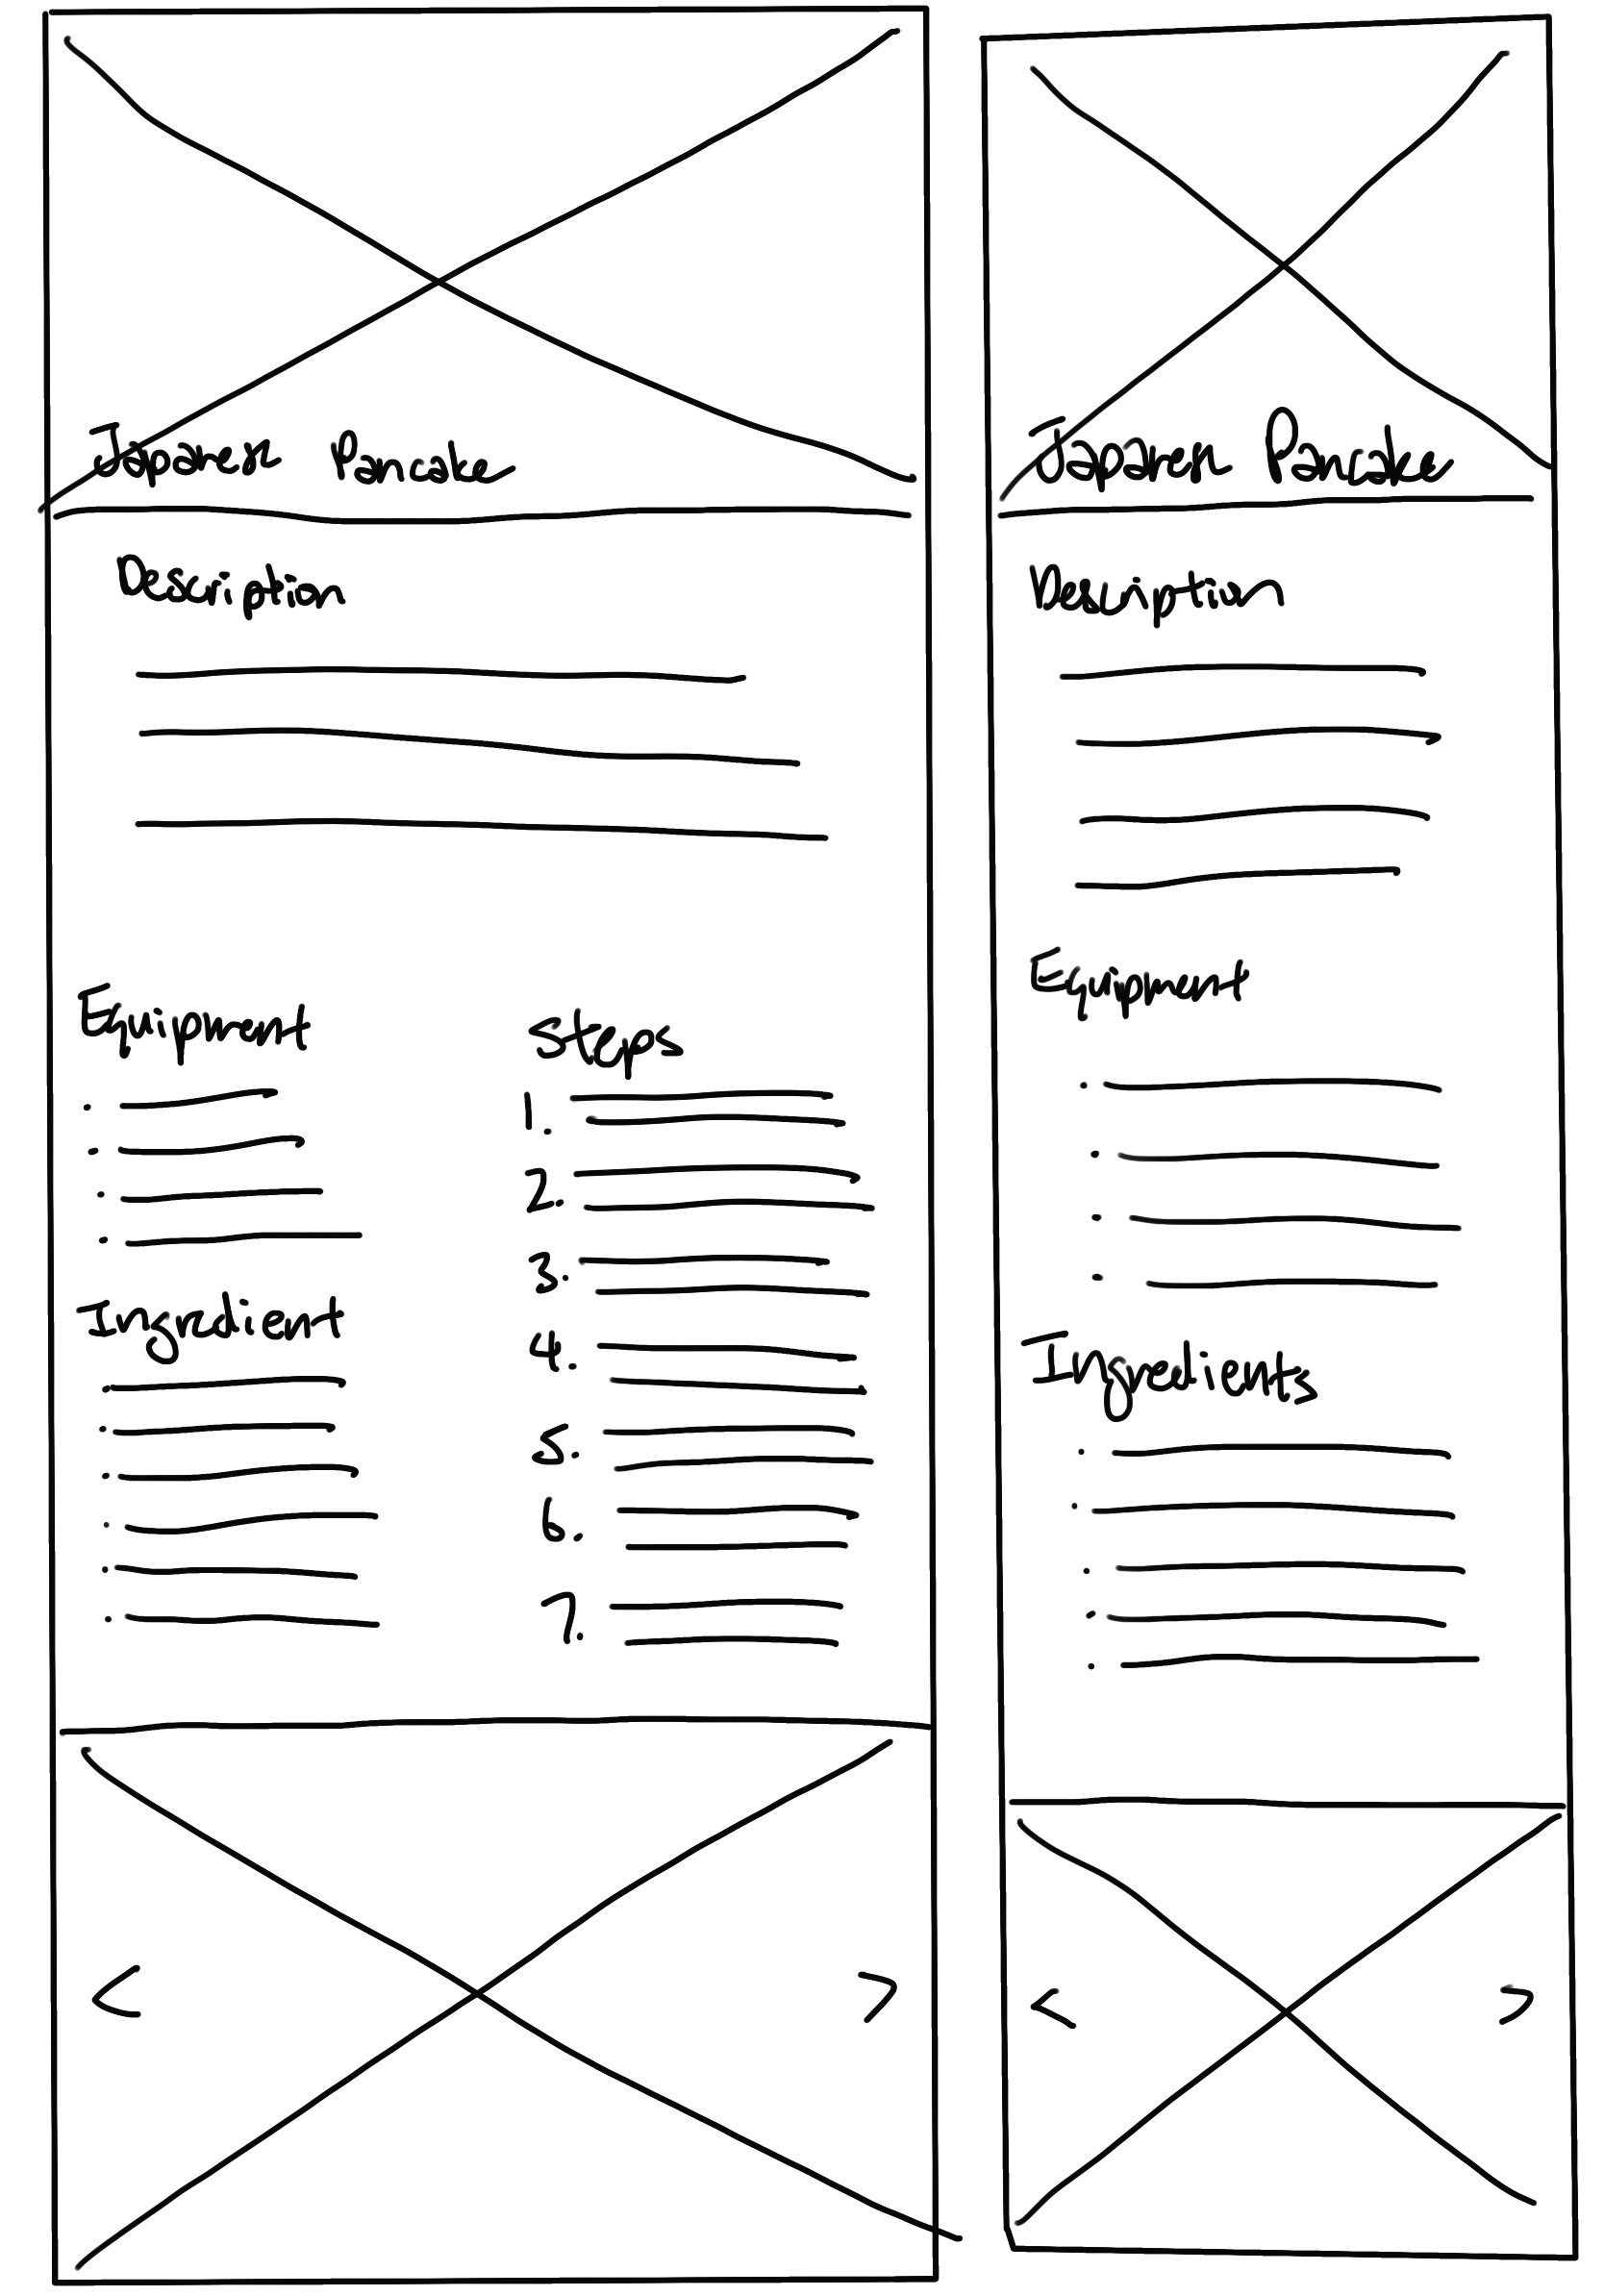 Japanese Pancake
Description
Equipment
Ingredient
Steps
1.
2.
3.
4.
5.
6.
7.
<
>
Japanese Pancake
Description
Equipment
Ingredients
<
>